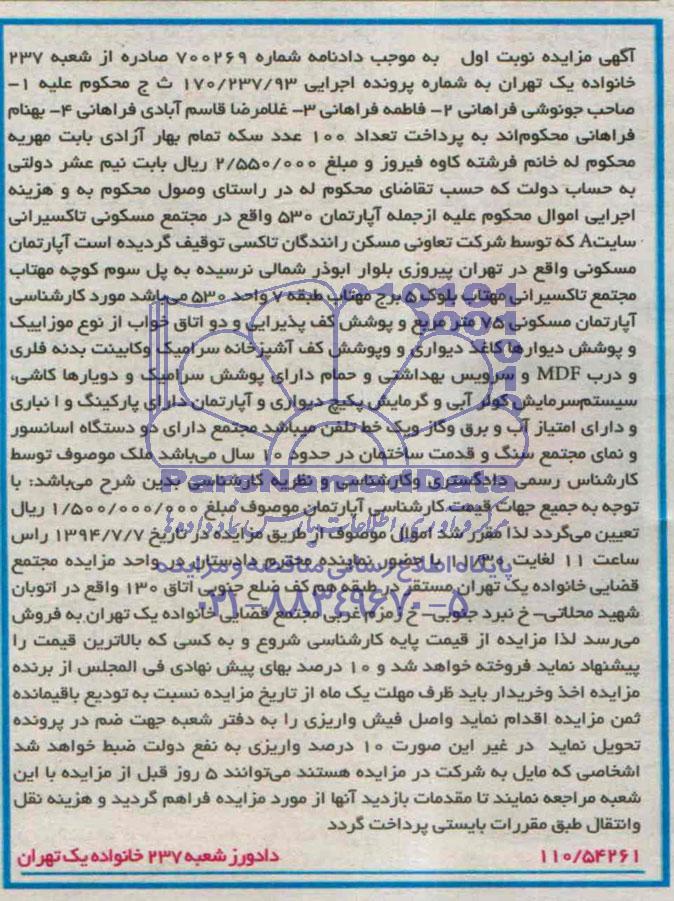 آگهی مزایده نوبت اول به موجب دادنامه شماره ۷۰۰۲۶۹ صادره از شعبه ۲۳۷
خانواده یک تهران به شماره پرونده اجرایی ۱۷۰/۲۳۷/۹۳ ث ج محکوم علیه ۱-
صاحب جونوشی فراهانی ۲- فاطمه فراهانی ۳- غلامرضا قاسم آبادی فراهانی ۴- بهنام
فراهانی محکوم‌اند به پرداخت تعداد ۱۰۰ عدد سکه تمام بهار آزادی بابت مهریه
محکوم له خانم فرشته کاوه فیروز و مبلغ ۲/۵۵۰/۰۰۰ ریال بابت نیم عشر دولتی
به حساب دولت که حسب تقاضای محکوم له در راستای وصول محکوم به و هزینه
اجرایی اموال محکوم علیه ازجمله آپارتمان ۵۳۰ واقع در مجتمع مسکونی تاکسیرانی
سایتA که توسط شرکت تعاونی مسکن رانندگان تاکسی توقیف گردیده است آپارتمان
مسکونی واقع در تهران پیروزی بلوار ابوذر شمالی نرسیده به پل سوم کوچه مهتاب
مجتمع تاکسیرانی مهتاب بلوک ۵ برج مهتاب طبقه ۷ واحد ۵۳۰ می‌باشد مورد کارشناسی
آپارتمان مسکونی ۷۵ متر مربع و پوشش کف پذیرایی و دو اتاق خواب از نوع موزاییک
و پوشش دیوارها کاغذ دیواری و وپوشش کف آشپزخانه سرامیک وکابینت بدنه فلزی
و درب MDF و سرویس بهداشتی و حمام دارای پوشش سرامیک و دویارها کاشی،
سیستم‌سرمایش کولر آبی و گرمایش پکیج دیواری و آپارتمان دارای پارکینگ و ا نباری
و دارای امتیاز آب و برق وگاز ویک خط تلفن میباشد مجتمع دارای دو دستگاه اسانسور
و نمای مجتمع سنگ و قدمت ساختمان در حدود ۱۰ سال می‌باشد ملک موصوف توسط
کارشناس رسمی دادگستری وکارشناسی و نظریه کارشناسی بدین شرح می‌باشد: با
توجه به جمیع جهات قیمت کارشناسی آپارتمان موصوف مبلغ ۱/۵۰۰/۰۰۰/۰۰۰ ریال
تعیین می‌گردد لذا مقرر شد اموال موصوف از طریق مزایده در تاریخ ۱۳۹۴/۷/۷ راس
ساعت ۱۱ لغایت ۱۱/۳۰ با حضور نماینده محترم دادستان در واحد مزایده مجتمع
قضایی خانواده یک تهران مستقر در طبقه هم کف ضلع جنوبی اتاق ۱۳۰ واقع در اتوبان
شهید محلاتی- خ نبرد جنوبی- خ زمزم غربی مجتمع قضایی خانواده یک تهران به فروش
می‌رسد لذا مزایده از قیمت پایه کارشناسی شروع و به کسی که بالاترین قیمت را
پیشنهاد نماید فروخته خواهد شد و ۱۰ درصد بهای پیش نهادی فی المجلس از برنده
مزایده اخذ وخریدار باید ظرف مهلت یک ماه از تاریخ مزایده نسبت به تودیع باقیمانده
ثمن مزایده اقدام نماید واصل فیش واریزی را به دفتر شعبه جهت ضم در پرونده
تحویل نماید در غیر این صورت ۱۰ درصد واریزی به نفع دولت ضبط خواهد شد
اشخاصی که مایل به شرکت در مزایده هستند می‌توانند ۵ روز قبل از مزایده با این
شعبه مراجعه نمایند تا مقدمات بازدید آنها از مورد مزایده فراهم گردید و هزینه نقل
وانتقال طبق مقررات بایستی پرداخت گردد
۱۱۰/۵۴۲۶۱ دادورز شعبه ۲۳۷ خانواده یک تهران
ParsNamadData
پایگاه اطلاع رسانی مناقصه و مزایده
۰۲۱-۸۸۳۴۹۶۷۰-۵